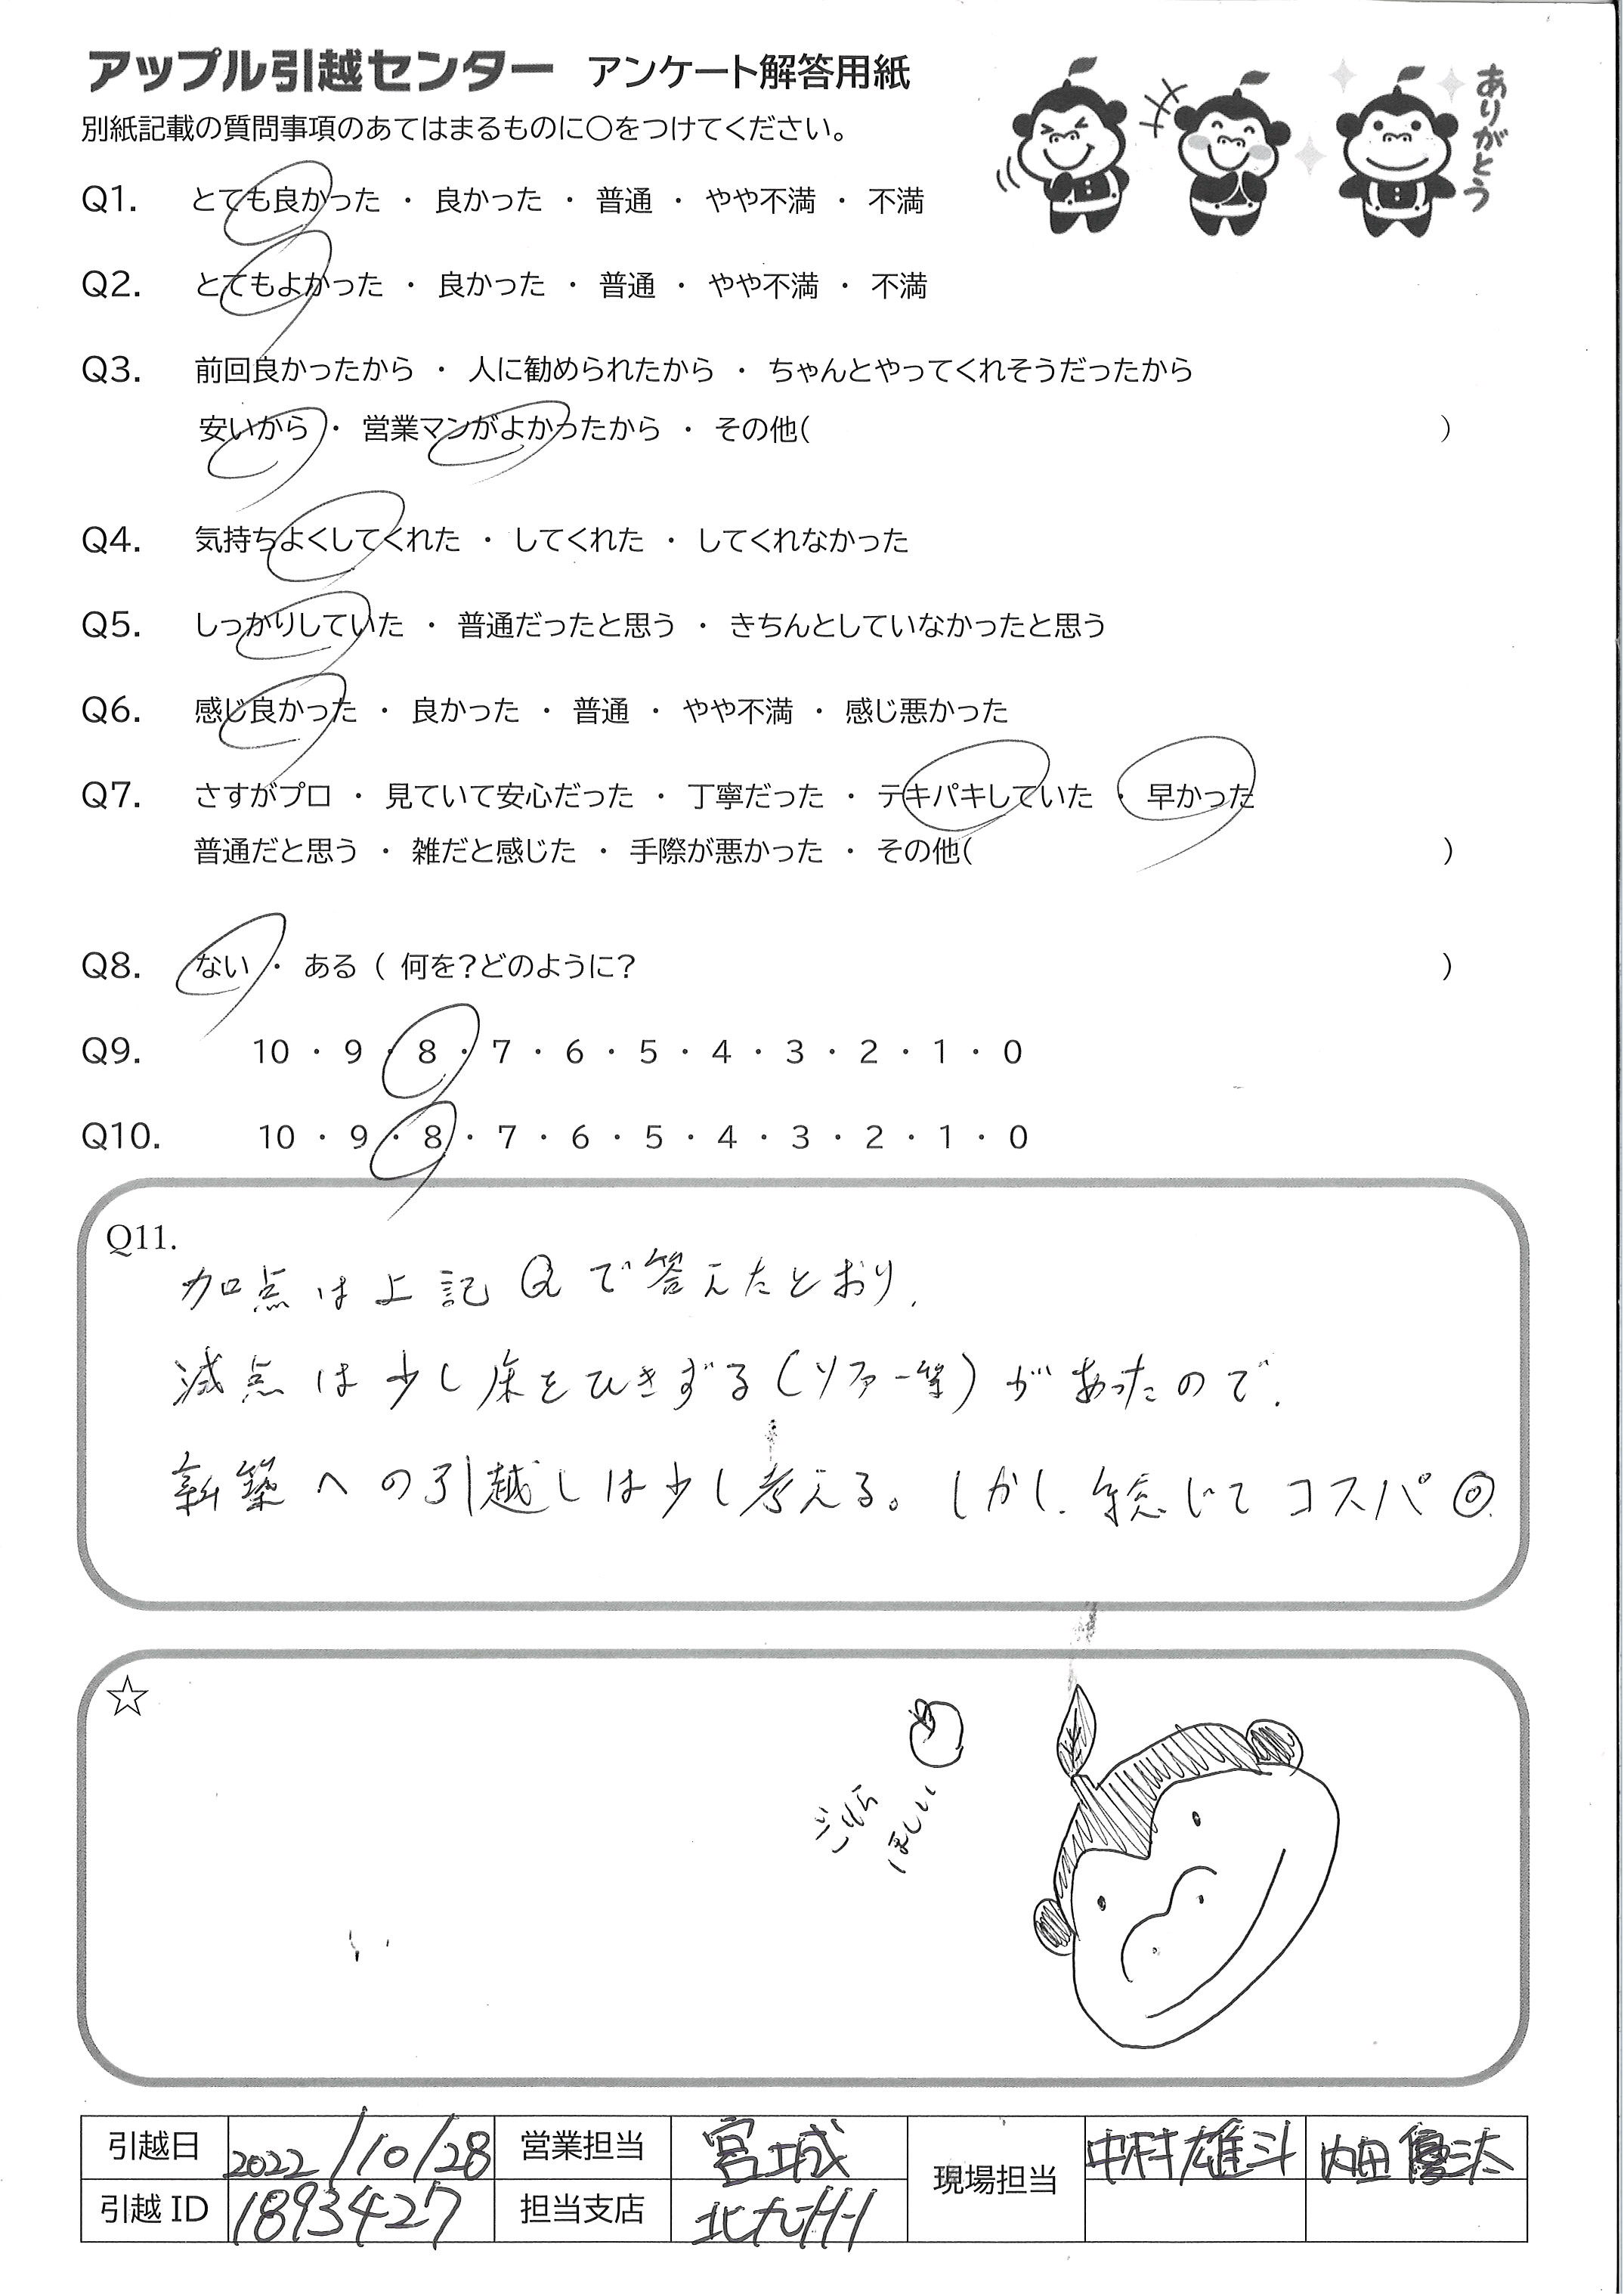 アップル引越センター アンケート解答用紙
ありがとう
別紙記載の質問事項のあてはまるものに○をつけてください。
Q1. とても良かった ・ 良かった ・ 普通 ・ やや不満 ・ 不満
Q2. とてもよかった ・ 良かった ・ 普通 ・ やや不満 ・ 不満
Q3. 前回良かったから ・ 人に勧められたから ・ ちゃんとやってくれそうだったから
安いから ・ 営業マンがよかったから ・ その他( )
Q4. 気持ちよくしてくれた ・ してくれた ・ してくれなかった
Q5. しっかりしていた ・ 普通だったと思う ・ きちんとしていなかったと思う
Q6. 感じ良かった ・ 良かった ・ 普通 ・ やや不満 ・ 感じ悪かった
Q7. さすがプロ ・ 見ていて安心だった ・ 丁寧だった ・ テキパキしていた ・ 早かった
普通だと思う ・ 雑だと感じた ・ 手際が悪かった ・ その他( )
Q8. ない ・ ある ( 何を?どのように? )
Q9. 10 ・ 9 ・ 8 ・ 7 ・ 6 ・ 5 ・ 4 ・ 3 ・ 2 ・ 1 ・ 0
Q10. 10 ・ 9 ・ 8 ・ 7 ・ 6 ・ 5 ・ 4 ・ 3 ・ 2 ・ 1 ・ 0
Q11.
加点は上記Qで答えたとおり.
減点は少し床をひきずる(ソファー等)があったので.
新築への引越しは少し考える。しかし、総じてコスパ◎.
☆
ほしい
引越日 2022/10/28 営業担当 宮城 現場担当 中村雄斗 内田優汰
引越ID 1893427 担当支店 北九州